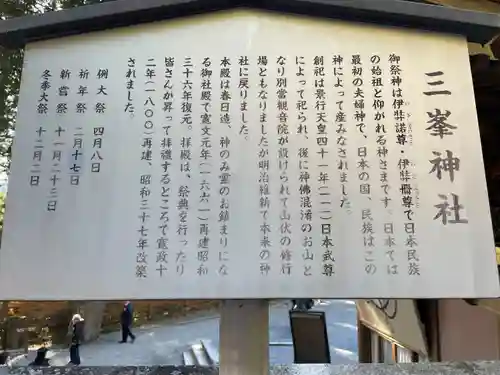 三峯神社
御祭神は伊弉諾尊・伊弉册尊で日本民族
の始祖と仰がれる神さまです。日本では
最初の夫婦神で、日本の国、民族はこの
神によって産みなされました。
創祀は景行天皇四十一年(一一一)日本武尊
によって祀られ、後に神佛混淆のお山と
なり別當観音院が設けられて山伏の修行
場ともなりましたが明治維新で本来の神
社に戻りました。
本殿は春日造、神のみ霊のお鎮まりにな
る御社殿で寛文元年(一六六一)再建昭和
三十六年復元。拝殿は、祭典を行ったり
皆さんが昇って拝禮するところで寛政十
二年(一八〇〇)再建、昭和三十七年改築
されました。
例大祭 四月八日
祈年祭 二月十七日
新嘗祭 十一月二十三日
冬季大祭 十二月二日